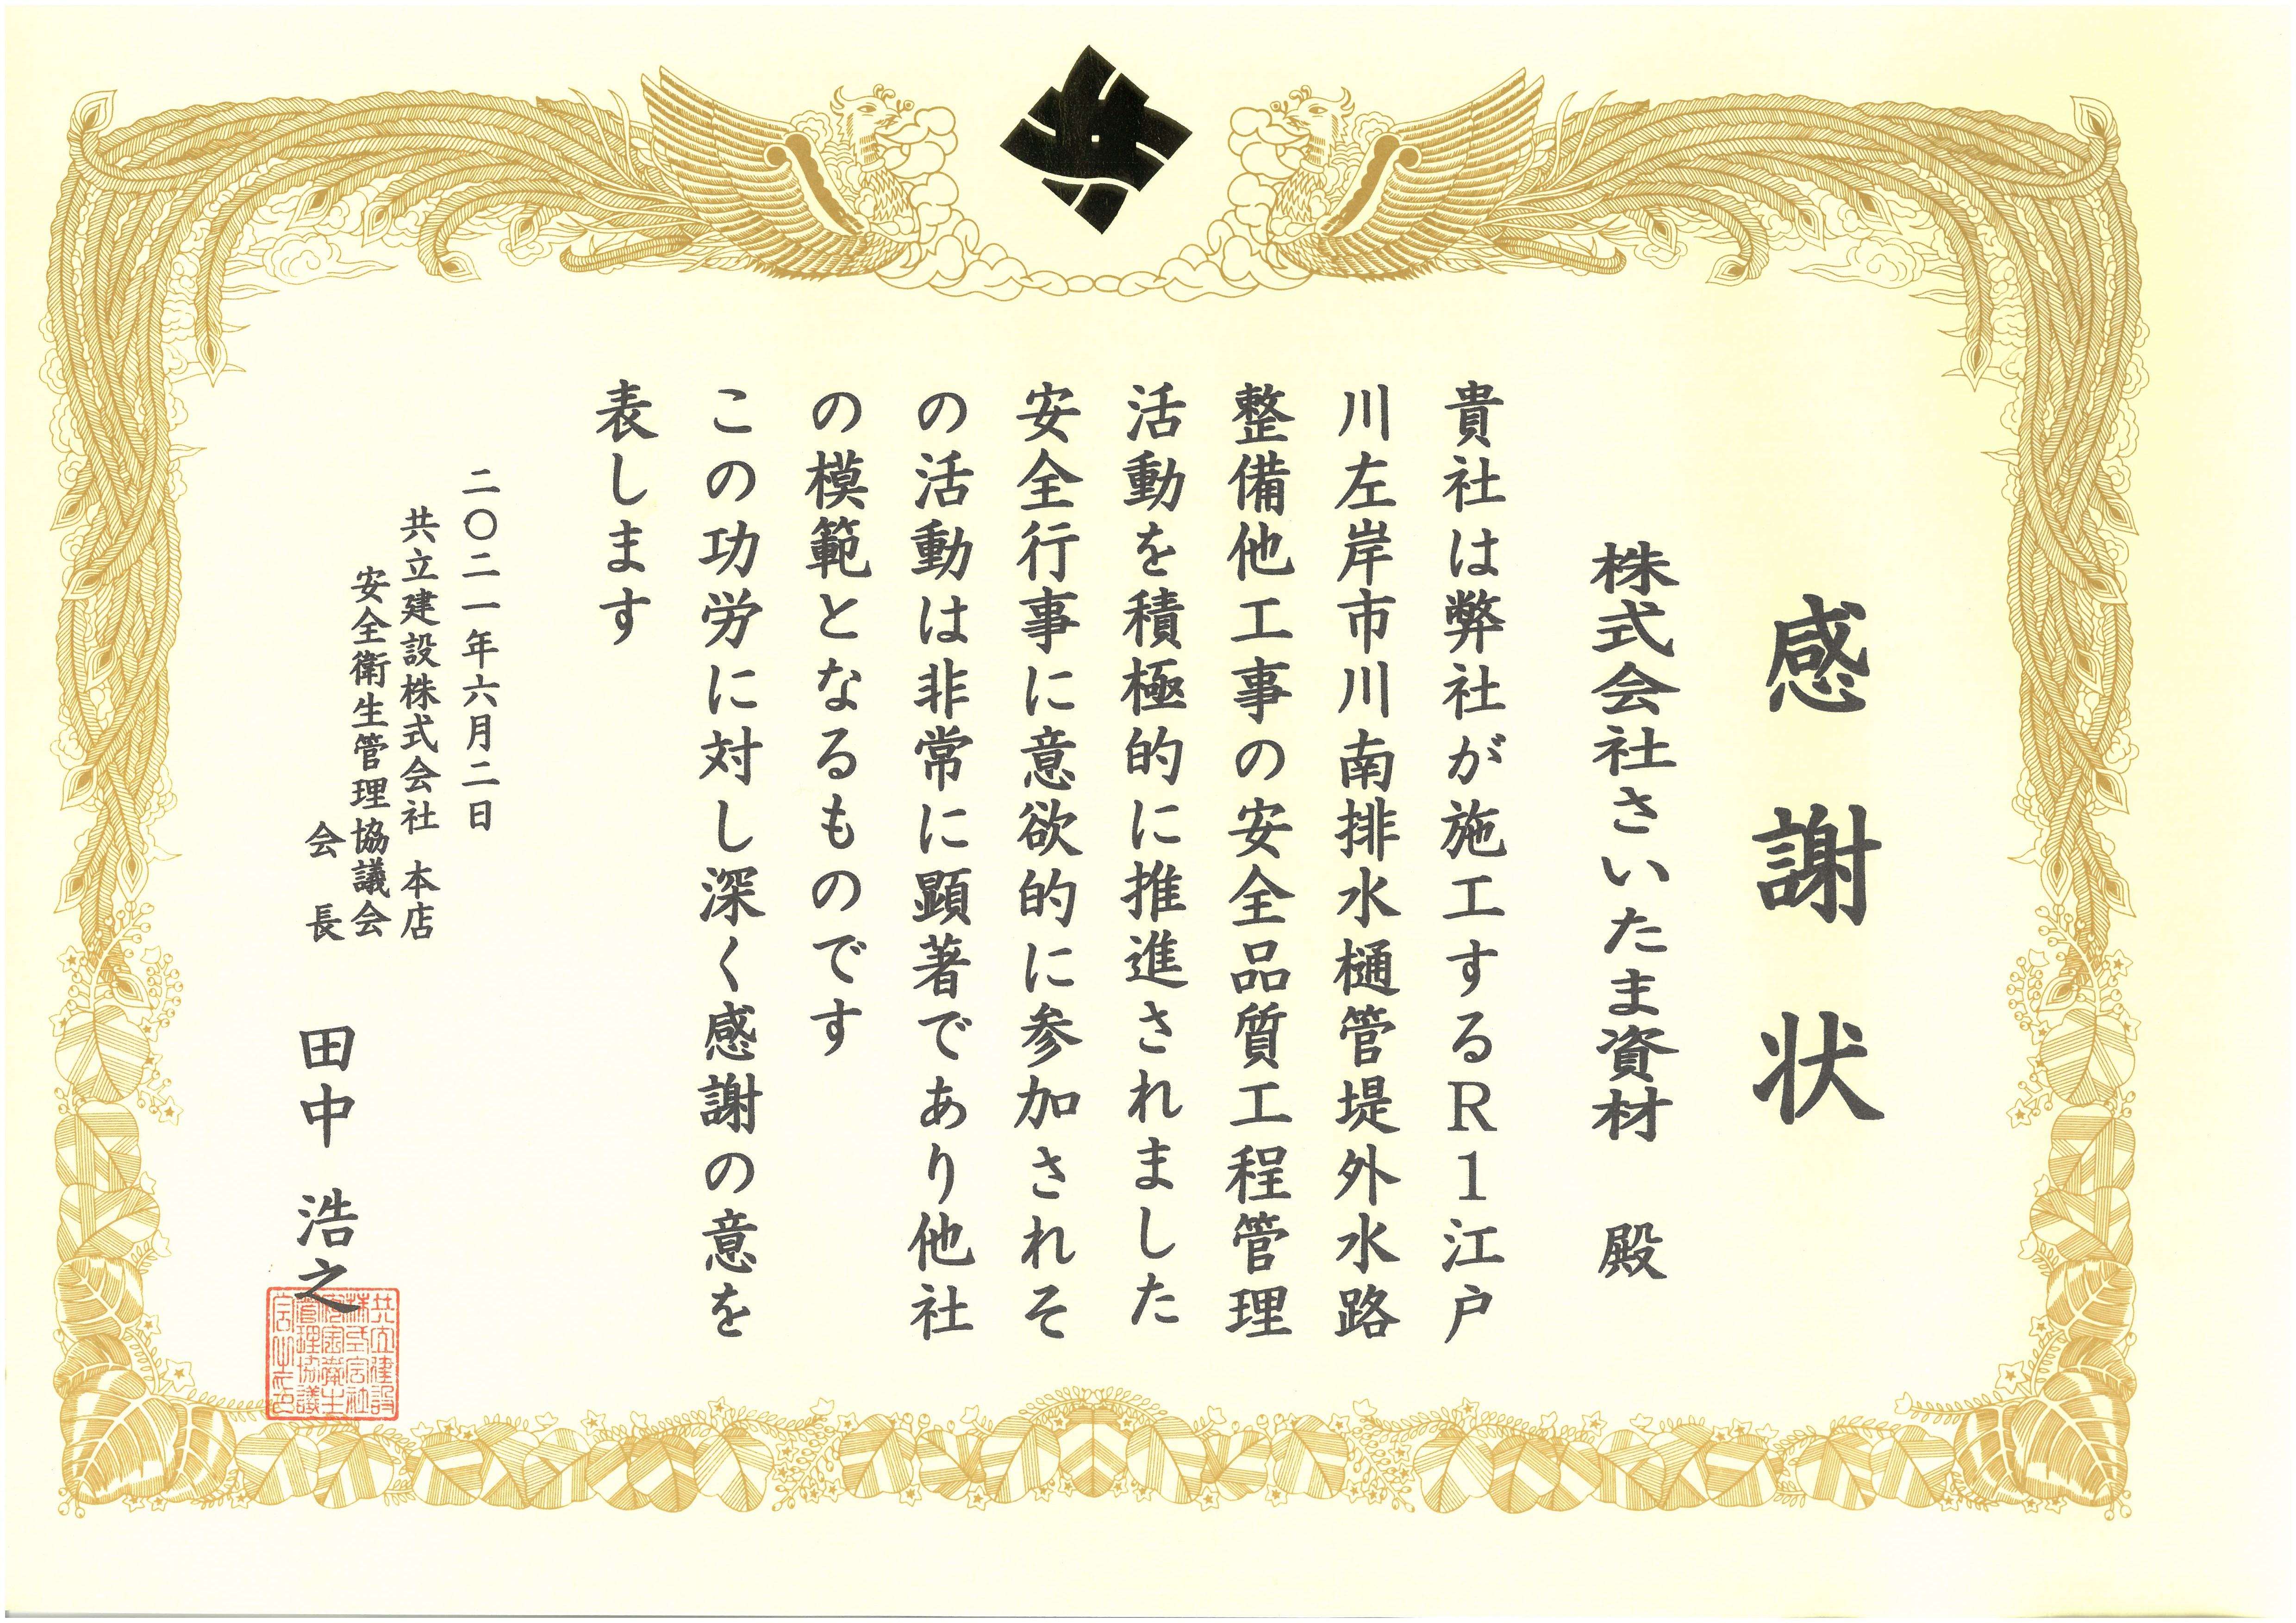 感謝状
株式会社さいたま資材 殿
貴社は弊社が施工するR1江戸
川左岸市川南排水樋管堤外水路
整備他工事の安全品質工程管理
活動を積極的に推進されました
安全行事に意欲的に参加されそ
の活動は非常に顕著であり他社
の模範となるものです
この功労に対し深く感謝の意を
表します
二〇二一年六月二日
共立建設株式会社 本店
安全衛生管理協議会
会長 田中 浩之
共立建設
株式会社
安全衛生
管理協議
会長之印